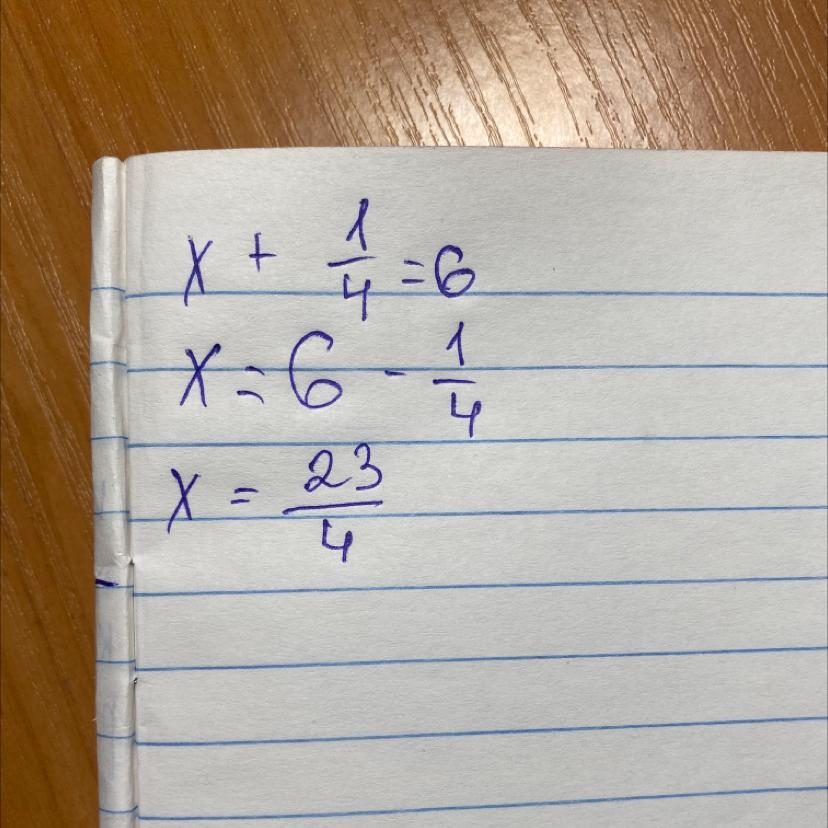 x + 1/4 = 6
x = 6 - 1/4
x = 23/4